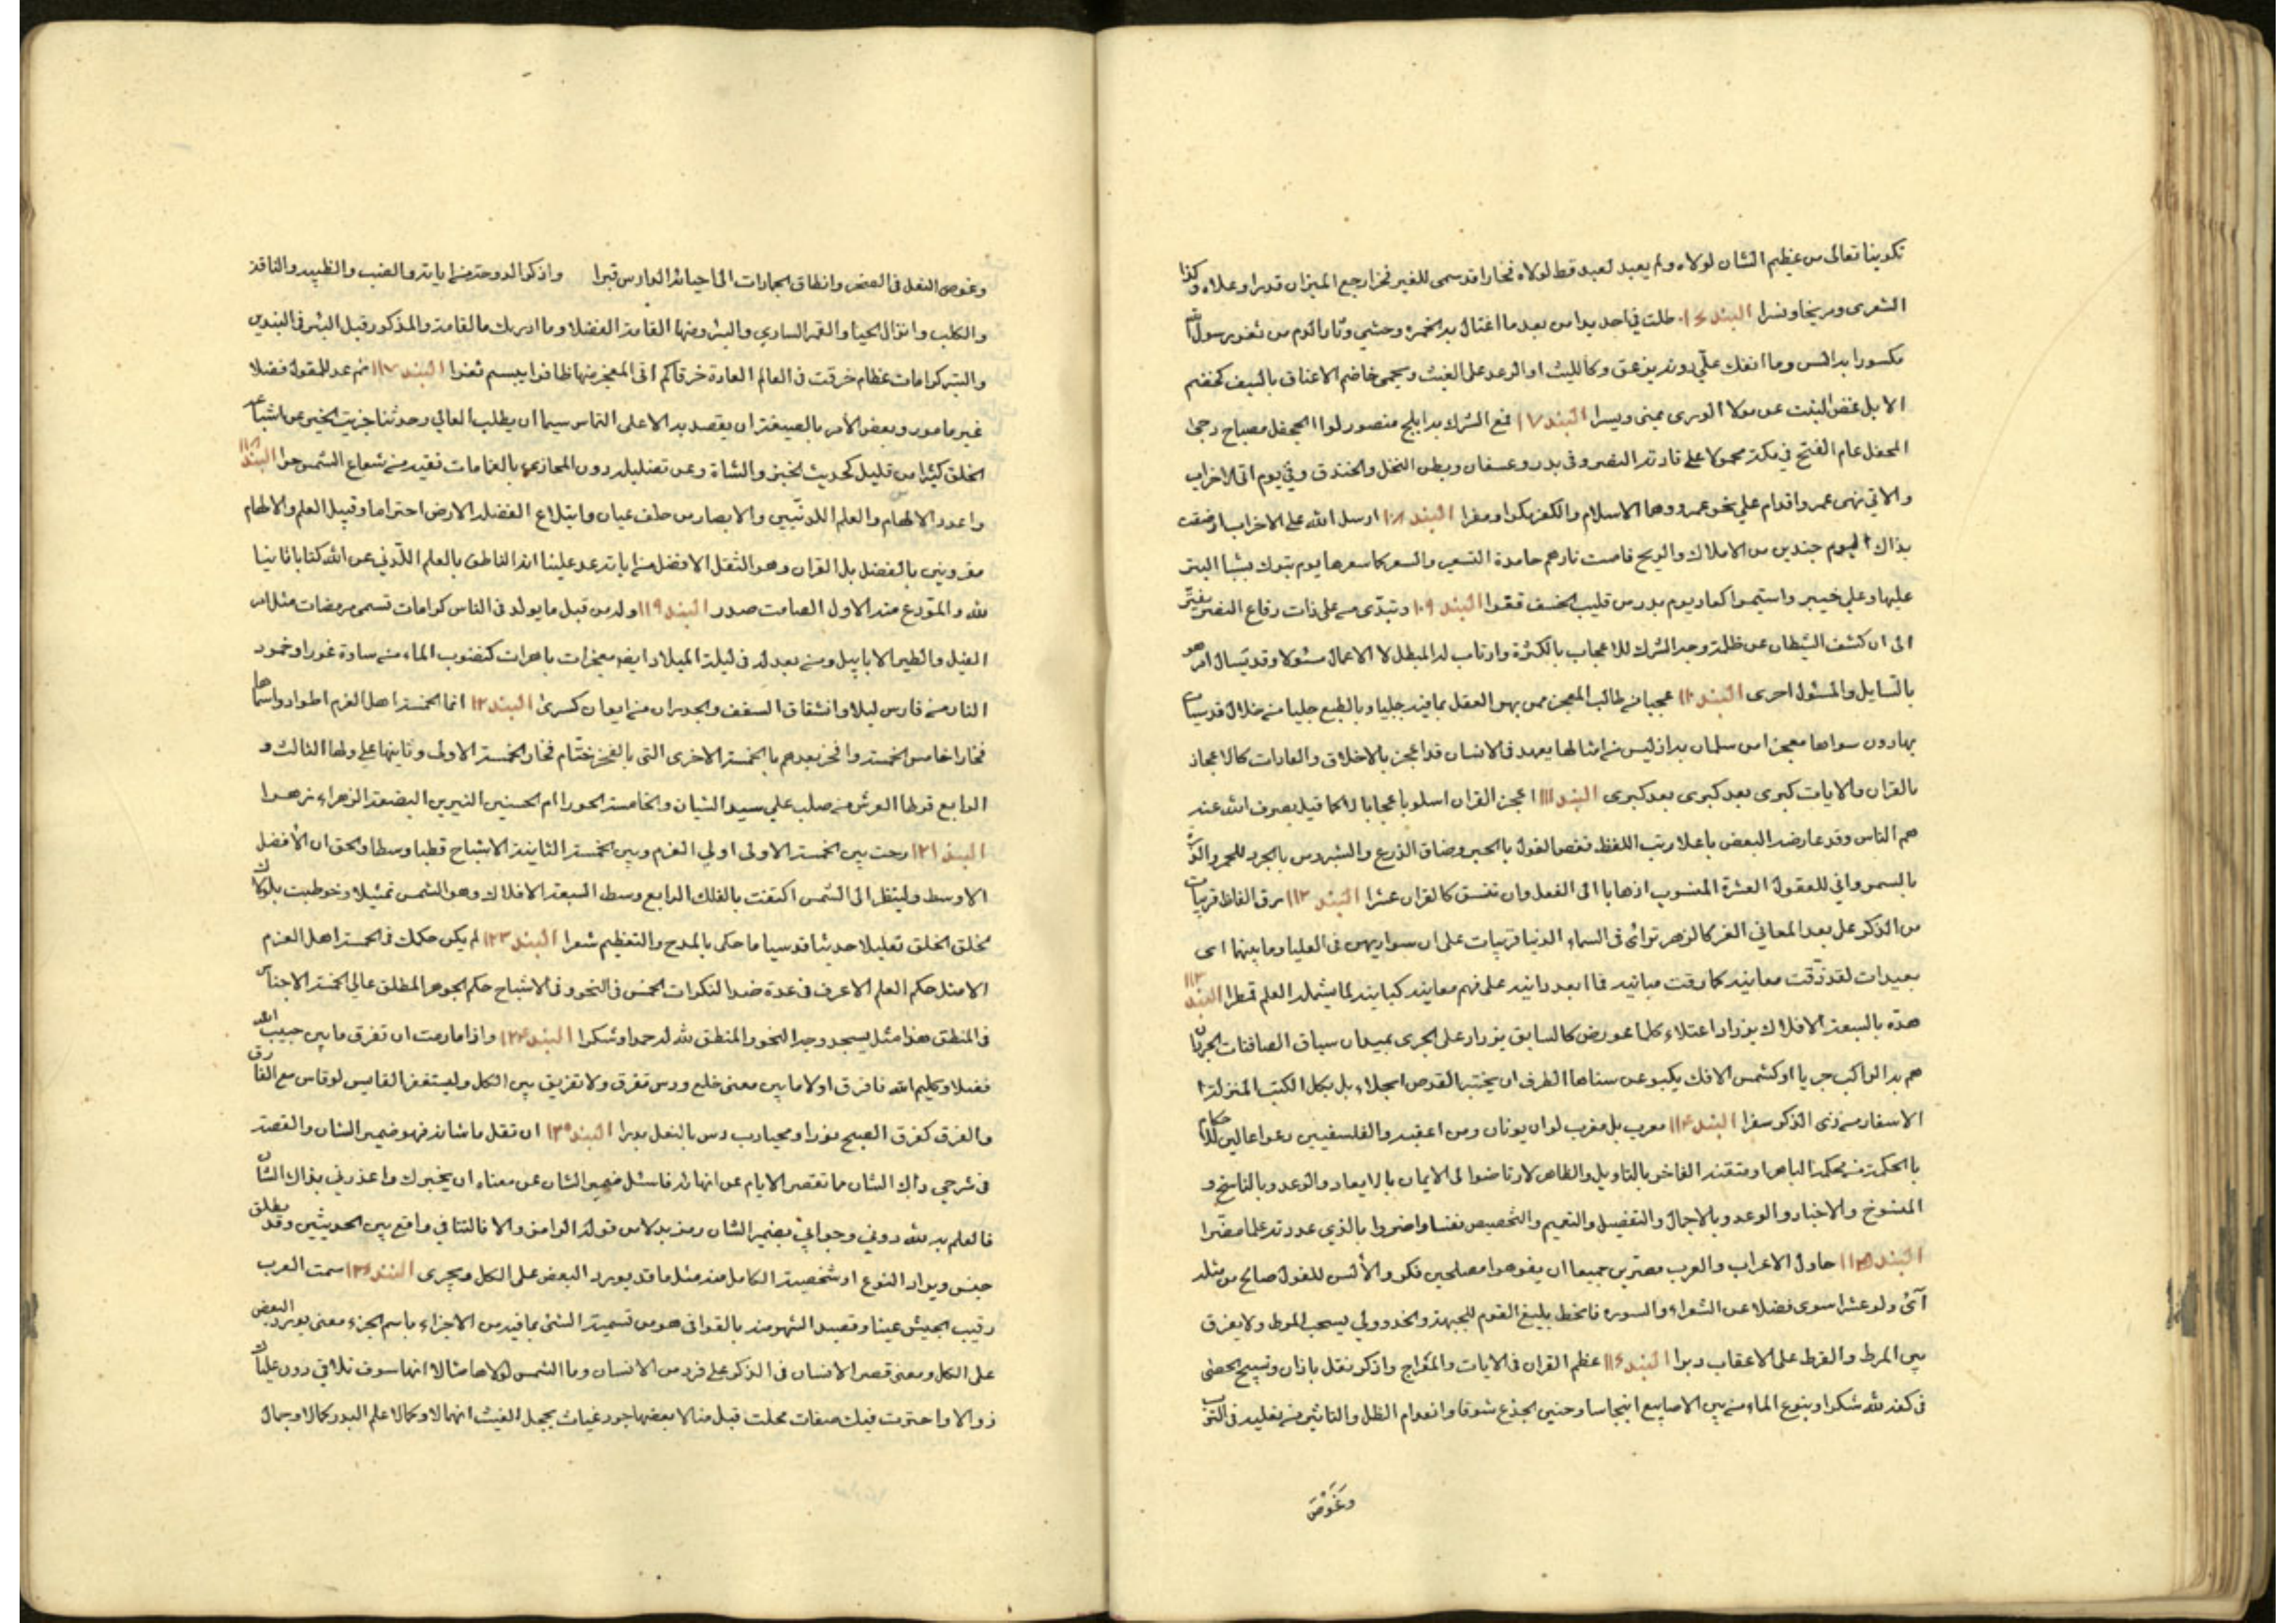 تكوينا تعالى من عظيم الشان لولاه ولم يعبد لعبد قط لولاه فخارا قد سمى للغير فخرا رجع الميزان قدرا وعلاه وكذا
الشعرى ومريخا ونسرا البند ١٠٦ طلت في احد يدا من بعد ما اغتال بد الحمزه وحشي وثار القوم من ثغر رسول الله
مكسورا بدا السن وما انفك علي دونه يزعق وكالليث او الرعد على الغيث ويحمى خاضم الاعناق بالسيف كخضم
الابل غض النبت عن مولا الورى يمنى ويسرا البند ١٠٧ قمع الشرك بدا بلج منصور لوا الجحفل مصباح دجى
المحفل عام الفتح في مكة محمولا على قادته النصر وفي بدر وعسفان وبطن النخل والخندق وفي يوم اتى الاحزاب
والاتي نهى عمر واقدام علي نحو عمرو وهما الاسلام والكفر مكرا ومفرا البند ١٠٨ ارسل الله على الاحزاب
بذاك اليوم جندين من الاملاك والريح فامست نارهم خامدة التسعير والسعر كما سعرها يوم تبوك
عليها وعلي خيبر واستموا كعاد يوم بدر من قليب الخسف قعرا البند ١٠٩ وتبدى على ذات رقاع النصر
الى ان كشف الشيطان عن ظلمة وجه الشرك للاعجاب بالكثرة وارتاب له المبطل لا الاعمال مسئولا وقد يسال امر هو
بالسايل والمسئول احرى البند ١١٠ عجبا من طالب المعجز ممن بهر العقل بما فيه جليا وبالطبع جليا من خلال قد
بها دون سواها معجزا من سلمان بدا ذ ليس من امثالها يعهد في الانسان قد اعجز بالاخلاق والعادات كالاعجاز
بالقران والايات كبرى بعد كبرى بعد كبرى البند ١١١ اعجز القران اسلوبا عجابا لا كما قيل بصرف الله عنه
همم الناس وقد عارضه البعض باعلا رتب اللفظ فغص القول بالحبر وضاق الذرع والشبر
بالسمر واني للعقول العشرة المنسوب اذهابا الى الفعل وان تنسق كالقران عشرا البند ١١٢ برق الفاظ قريبات
من الذكر على بعد المعاني الغر كالزهر تراءى في السماء الدنيا قريبات على ان سواريهن في العليا وما بينهما اى
بعيدات لقد دقت معانيه كما رقت مبانيه فما ابعد دانيه على فهم معانيه كبانيه لما يشمله العلم قمطرا البند ١١٣
هذه بالسبعة الافلاك يزداد اعتلاء كلما عورض كالسابق يزداد على الجرى بميدان سباق الصافنات
هم بدا لواكب جريا او كشمس الافك يكبو عن سناها الطرف ان يختبر القوص انجلاء بل بكل الكتب المنزلة
الاسفار من ذى الذكر سفرا البند ١١٤ معرب بل مغرب لو ان يونان ومن اعقبه والفلسفيين دعوا عالين
بالحكمة من محكمه الباهر او متقنه الفاخر بالتاويل والظاهر لارتاضوا الى الايمان بالايعاد والوعد وبالناسخ و
المنسوخ والاخبار والوعد وبالاجمال والتفصيل والتعميم والتخصيص نفسا واضروا بالذي عددته علما مضرا
البند ١١٥ حاول الاعراب والعرب مصرين جميعا ان يفوهوا مصلحين فكر والالسن للقول صالح من مثله
آىً ولو عشرا سوى فضلا عن الشعراء والسوره فانحط بليغ القوم للجبهة والخد وولي يسحب المرط ولا يفرق
بين المرط والقرط على الاعقاب دبرا البند ١١٦ عظم القران في الايات والمعراج واذكر نقل باذان وتسبيح الحصى
في كفه لله شكرا وينوع الماء من بين الاصابيع انبجاسا وحنين الجذع شوقا وانعدام الظل والتاثير من نعليه في الترب
وغوص
وغوص النعل في الصخر وانطاق الجمادات الى احيائه الدارس قبرا واذكر الدوحة من اياته والضب والظبيه والناقه
والكلب وانزال الحيا والقمر الساري والبئر ومنها القامة الفضلا وما ادريك ما القامة والمذكور قبل البئر في البندين
والبند كرامات عظام خرقت في العالم العادة خرقا كم اتى المعجز منها ظافرا يبسم ثغرا البند ١١٧ ثم عد للقول فضلا
غير مامور وبعض الامر بالصيغة ان يقصد به الاعلى التماس سيما ان يطلب العالي وحدثنا جزيت الخير عن اشباعه
الخلق كثيرا من قليل كحديث الخبز والشاة وعن تضليله دون المحازي بالغامات تقيه من شعاع الشمس حرا البند ١١٨
واعدد الالهام والعلم اللدنيين والابصار من خلف عيان وابتلاع الفضلة الارض احتراما وقبيل العلم والالهام
مقرونين بالفضل بل القران وهو الثقل الافضل من اياته عد علينا انه الناطق بالعلم اللدني عن الله كتابا ثانيا
لله والمودع منه الاول الصامت صدرا البند ١١٩ وله من قبل ما يولد في الناس كرامات تسمى مرمضات مثل اس
الفيل والطير الابابيل ومن بعد له في ليلة الميلاد ايضا معجزات باهرات كنضوب الماء من ساوة غورا وخمود
النار من فارس ليلا وانشقاق السقف والجدران من ايوان كسرى البند ١٢٠ انما الخمسة اهل العزم اطواد واسماها
فخارا خامس الخمسة وافخر بعدهم بالخمسة الاخرى التي بالفخر ختام فخار الخمسة الاولى وثانيها علي ولها الثالث و
الرابع قرطا العرش من صلب علي سيدا الشبان والخامسة الحورا ام الحسنين النيرين البضعة الزهراء زهرا
البند ١٢١ رحت بين الخمسة الاولى اولي العزم وبين الخمسة الثانية الاشباح قطبا وسطا والحق ان الافضل
الاوسط ولينظر الى الشمس اكتفت بالفلك الرابع وسط السبعة الافلاك وهو الشمس تمثيلا وخوطبت بلولاك
لخلق الخلق تعليلا حديثا قدسيا ما حكى بالمدح والتعظيم شعرا البند ١٢٣ لم يكن حكمك في الخمسة اهل العزم
الامثل حكم العلم الاعرف في عدة ضد النكرات الخمس في النحو وفي الاشباح حكم الجوهر المطلق عالي الخمسة الاجناس
في المنطق هذا مثل يسجد وجه النحو والمنطق لله له حمدا وشكرا البند ١٢٤ واذا ما رمت ان تفرق ما بين حبيب الله
فضلا وكليم الله فافرق اولا ما بين معنى خلع ودس تفرق ولا تفريق بين الكل وليستغفر القايس لو قاس مع الفارق
والفرق كفرق الصبح نورا ومحيا رب دس بالنعل بدرا البند ١٢٥ ان تقل ما شانه فهو ضمير الشان والقصة
في شرحي ذاك الشان مما تقصر الايام عن انهاله فاسئل ضمير الشان عن معناه ان يخبرك واعذرني بذاك الشان
فالعلم به لله دوني وجوابي بضمير الشان رمز بدلا من قوله الوامق والا فالتنافي واقع بين الحديثين وقد يطلق
جنس ويراد النوع او شخصيته الكامل منه مثل ما قد يورد البعض على الكل ويجرى البند ١٢٦ سمت العرب
رقيب الجيش عينا وقصيد الشهر منه بالقوافي هو من تسمية الشئ بما فيه من الاجزاء باسم الجزء معنى يورد البعض
على الكل ومعنى قصر الانسان في الذكر على فرد من الانسان وما الشمس لولاها مثالا انها سوف تلاقي دون علياك
زوالا واحترت فيك صفات محلت قبل منالا بعضها جود غياث يجعل الغيث انهمالا وكمالا علم البدر كمالا وجمال